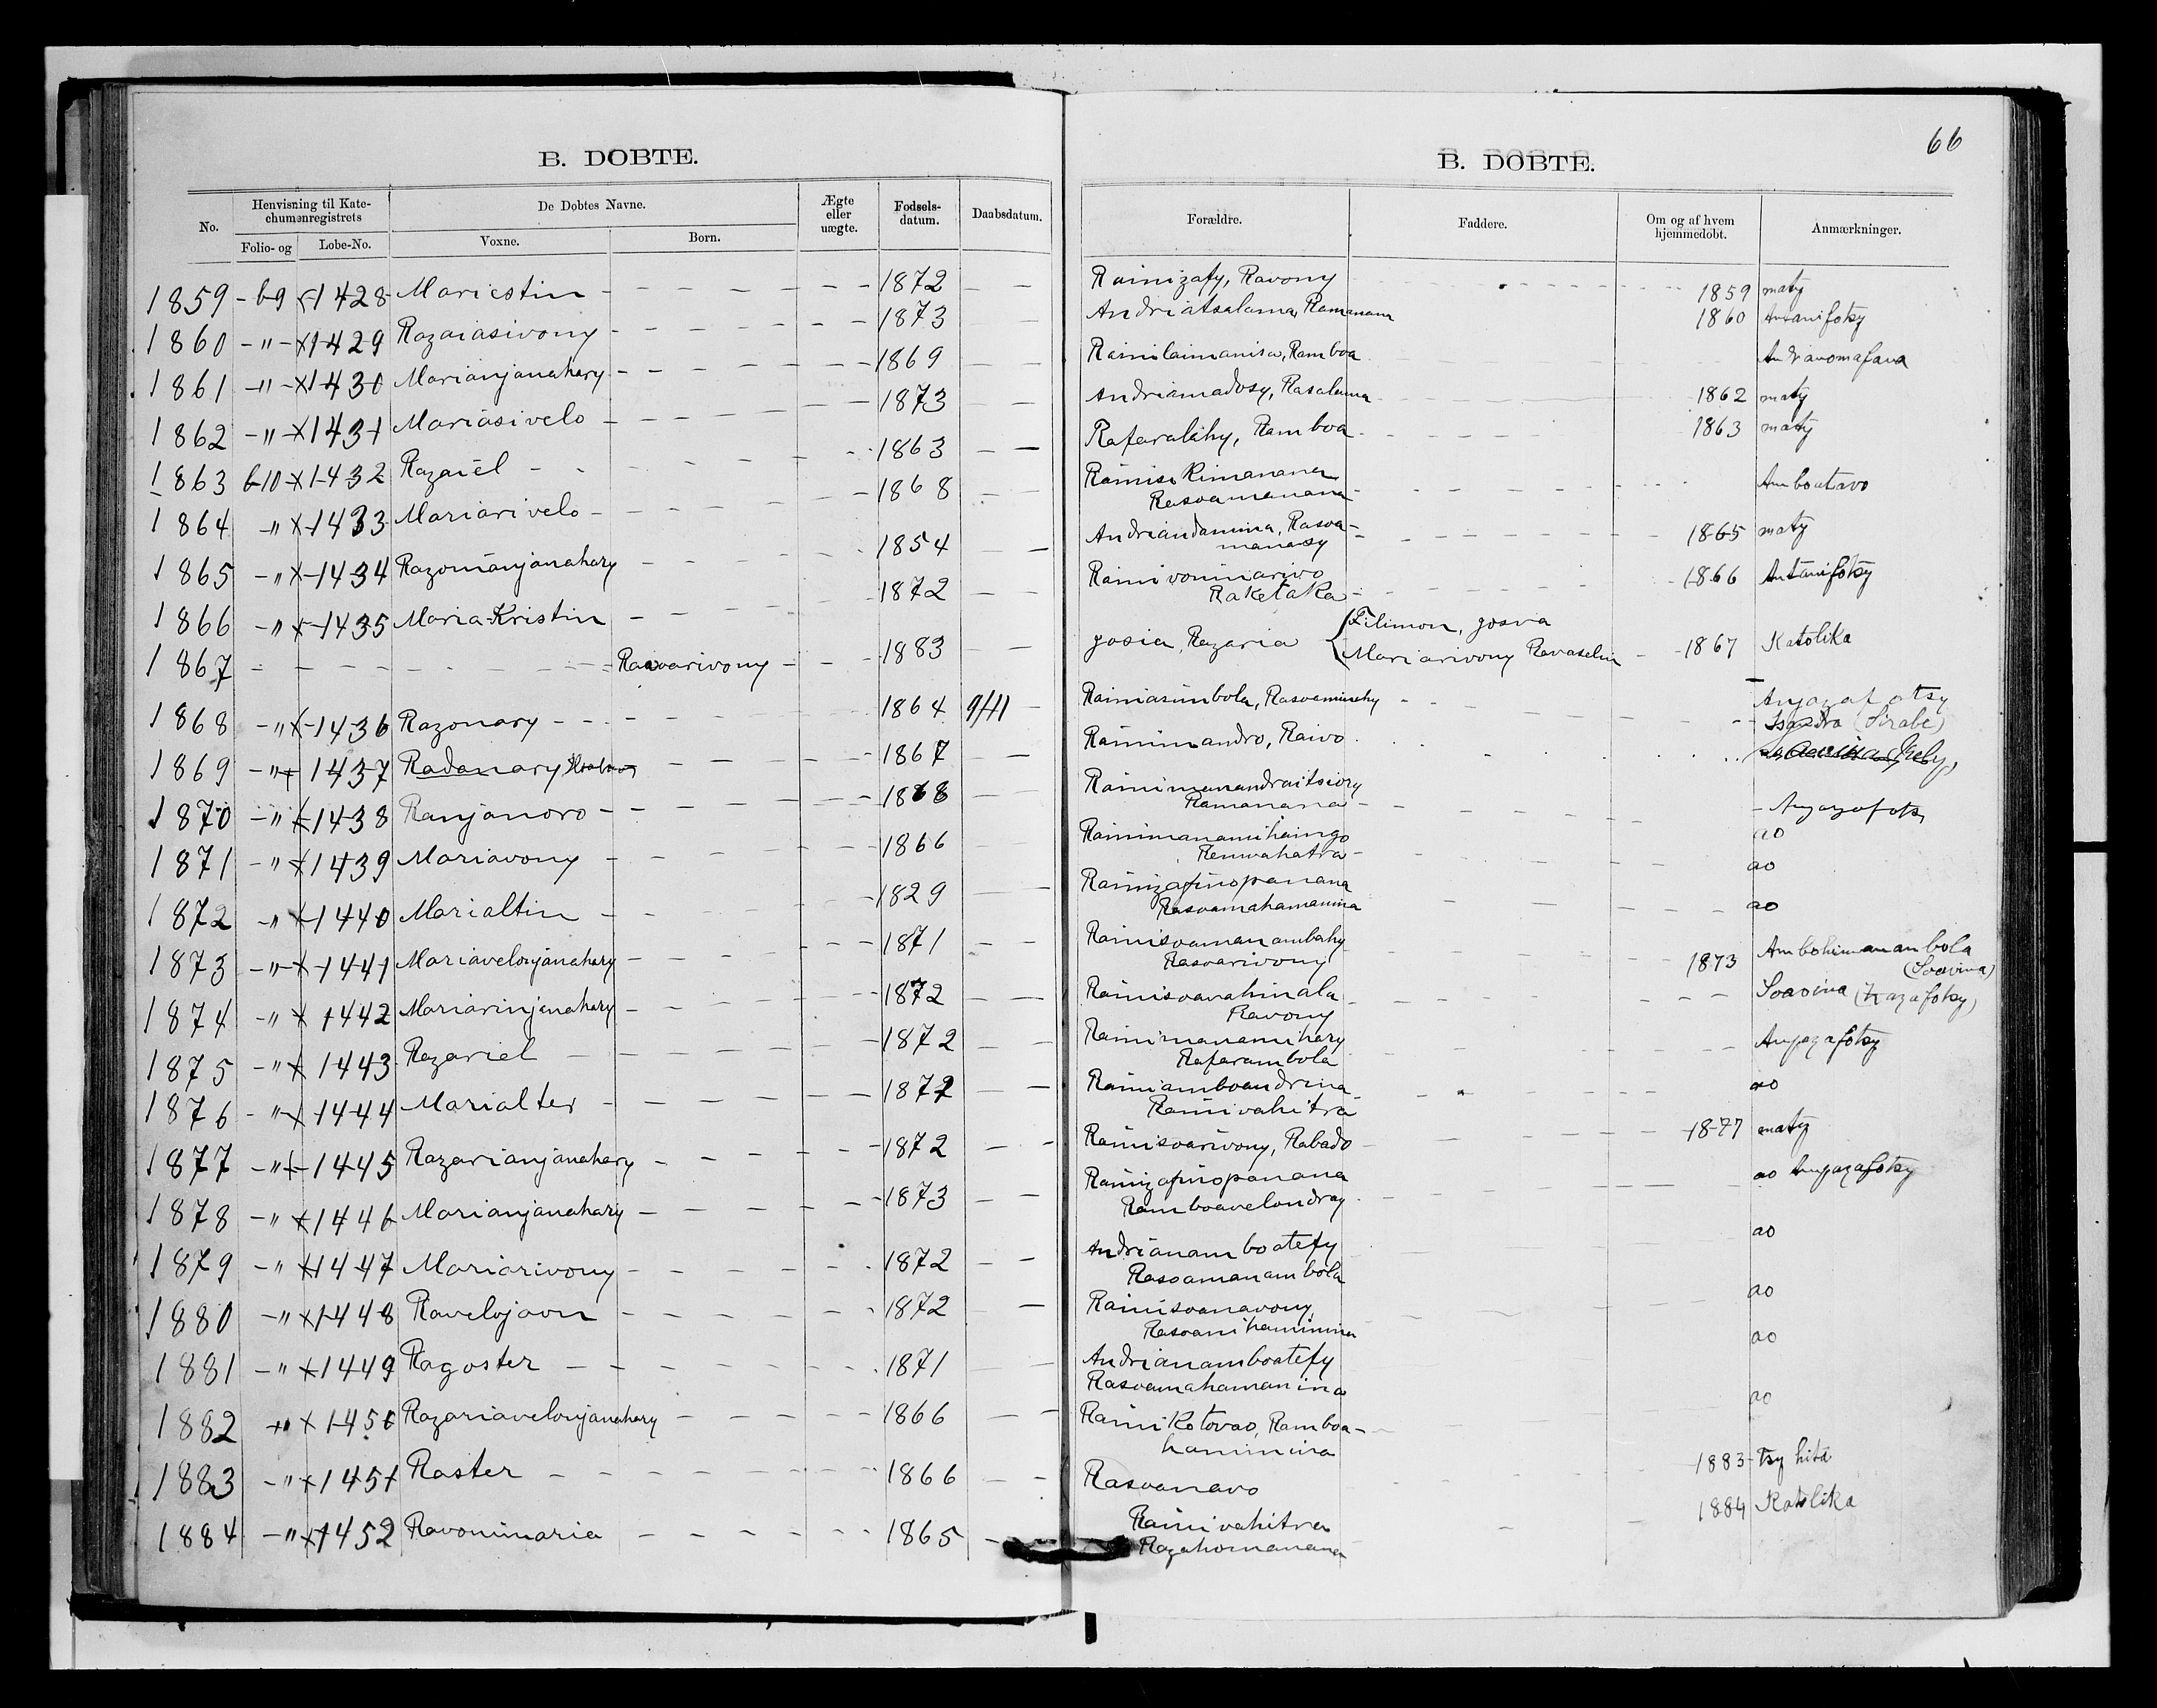 B. DØBTE.
No. Henvisning til Katechumenregistrets Folio- og Løbe-No. De Døbtes Navne. Voxne. Børn. Ægte eller uægte. Fødselsdatum. Daabsdatum.
1859 - 69 x 1428 Mariestin 1872
1860 - " - x 1429 Razaiasivony 1873
1861 - " - x 1430 Marianjanahary 1869
1862 - " - x 1431 Mariasivelo 1873
1863 610 x 1432 Razaiel 1863
1864 " x 1433 Mariarivelo 1868
1865 - " x 1434 Razomanjanahary 1854
1866 - " x 1435 Maria-Kristin 1872
1867 - Rasoarivony 1883
1868 - " x 1436 Razonary 1864 9/11
1869 - " x 1437 Radanary 1867
1870 - " x 1438 Ranjanoro 1868
1871 - " x 1439 Mariavony 1866
1872 - " x 1440 Marialtin 1829
1873 - " x 1441 Mariavelonjanahary 1871
1874 - " x 1442 Mariarinjanahary 1872
1875 - " x 1443 Razariel 1872
1876 - " x 1444 Marialter 1872
1877 - " x 1445 Razarianjanahary 1872
1878 - " x 1446 Marianjanahary 1873
1879 - " x 1447 Mariarivony 1872
1880 - " x 1448 Ravelojaon 1872
1881 - " x 1449 Ragoster 1871
1882 " x 1450 Razariavelonjanahary 1866
1883 - " x 1451 Raster 1866
1884 - " x 1452 Ravoninaria 1865
66
B. DØBTE.
Forældre. Faddere. Om og af hvem hjemmedøbt. Anmærkninger.
Rainizafy, Ravony 1859 maty
Andriatsalama, Ramanana 1860 Antanifotsy
Rainilaimanisa, Ramboa Andranomafana
Andriamadosy, Rasalama 1862 maty
Rafaralahy, Ramboa 1863 maty
Rainisi Rimanana
Rasoamanana Amboatavo
Andriandamina, Rasoa-
manasy 1865 maty
Rainivoninarivo
Raketaka 1866 Antanifotsy
Josia, Razaria { Filimon, Josva
Mariarivony Ravaselin 1867 Katolika
Rainiasimbola, Rasoamiachy Anjazafotsy
Isandra (Sirabe)
Rainimandro, Raivo
Rainimanandraitsiory
Ramanana Anjazafots
Rainimanamihaingo ao
Renivahatra ao
Rainizafinopanana
Rasoamahamanina ao
Rainisoamanambahy
Rasoarivony 1873 Ambohimanambola
(Soavina)
Rainisoavahinala Soavina (Hazafotsy)
Ravony
Rainimanamihary Anjazafotsy
Rafarambola
Rainiamboandrina ao
Rainivahitra
Rainisoarivony, Rabado 1877 maty
Rainizafinopanana ao Anjazafotsy
Ramboavelondray
Andrianamboatefy ao
Rasoamanambola
Rainisoanavony, ao
Rasoanihaminina ao
Andrianamboatefy
Rasoamahamanina ao
Rainikotovao, Ramboa-
haminina
Rasoanavo 1883 Tsy hita
Rainivahitra 1884 Katolika
Razahomanana